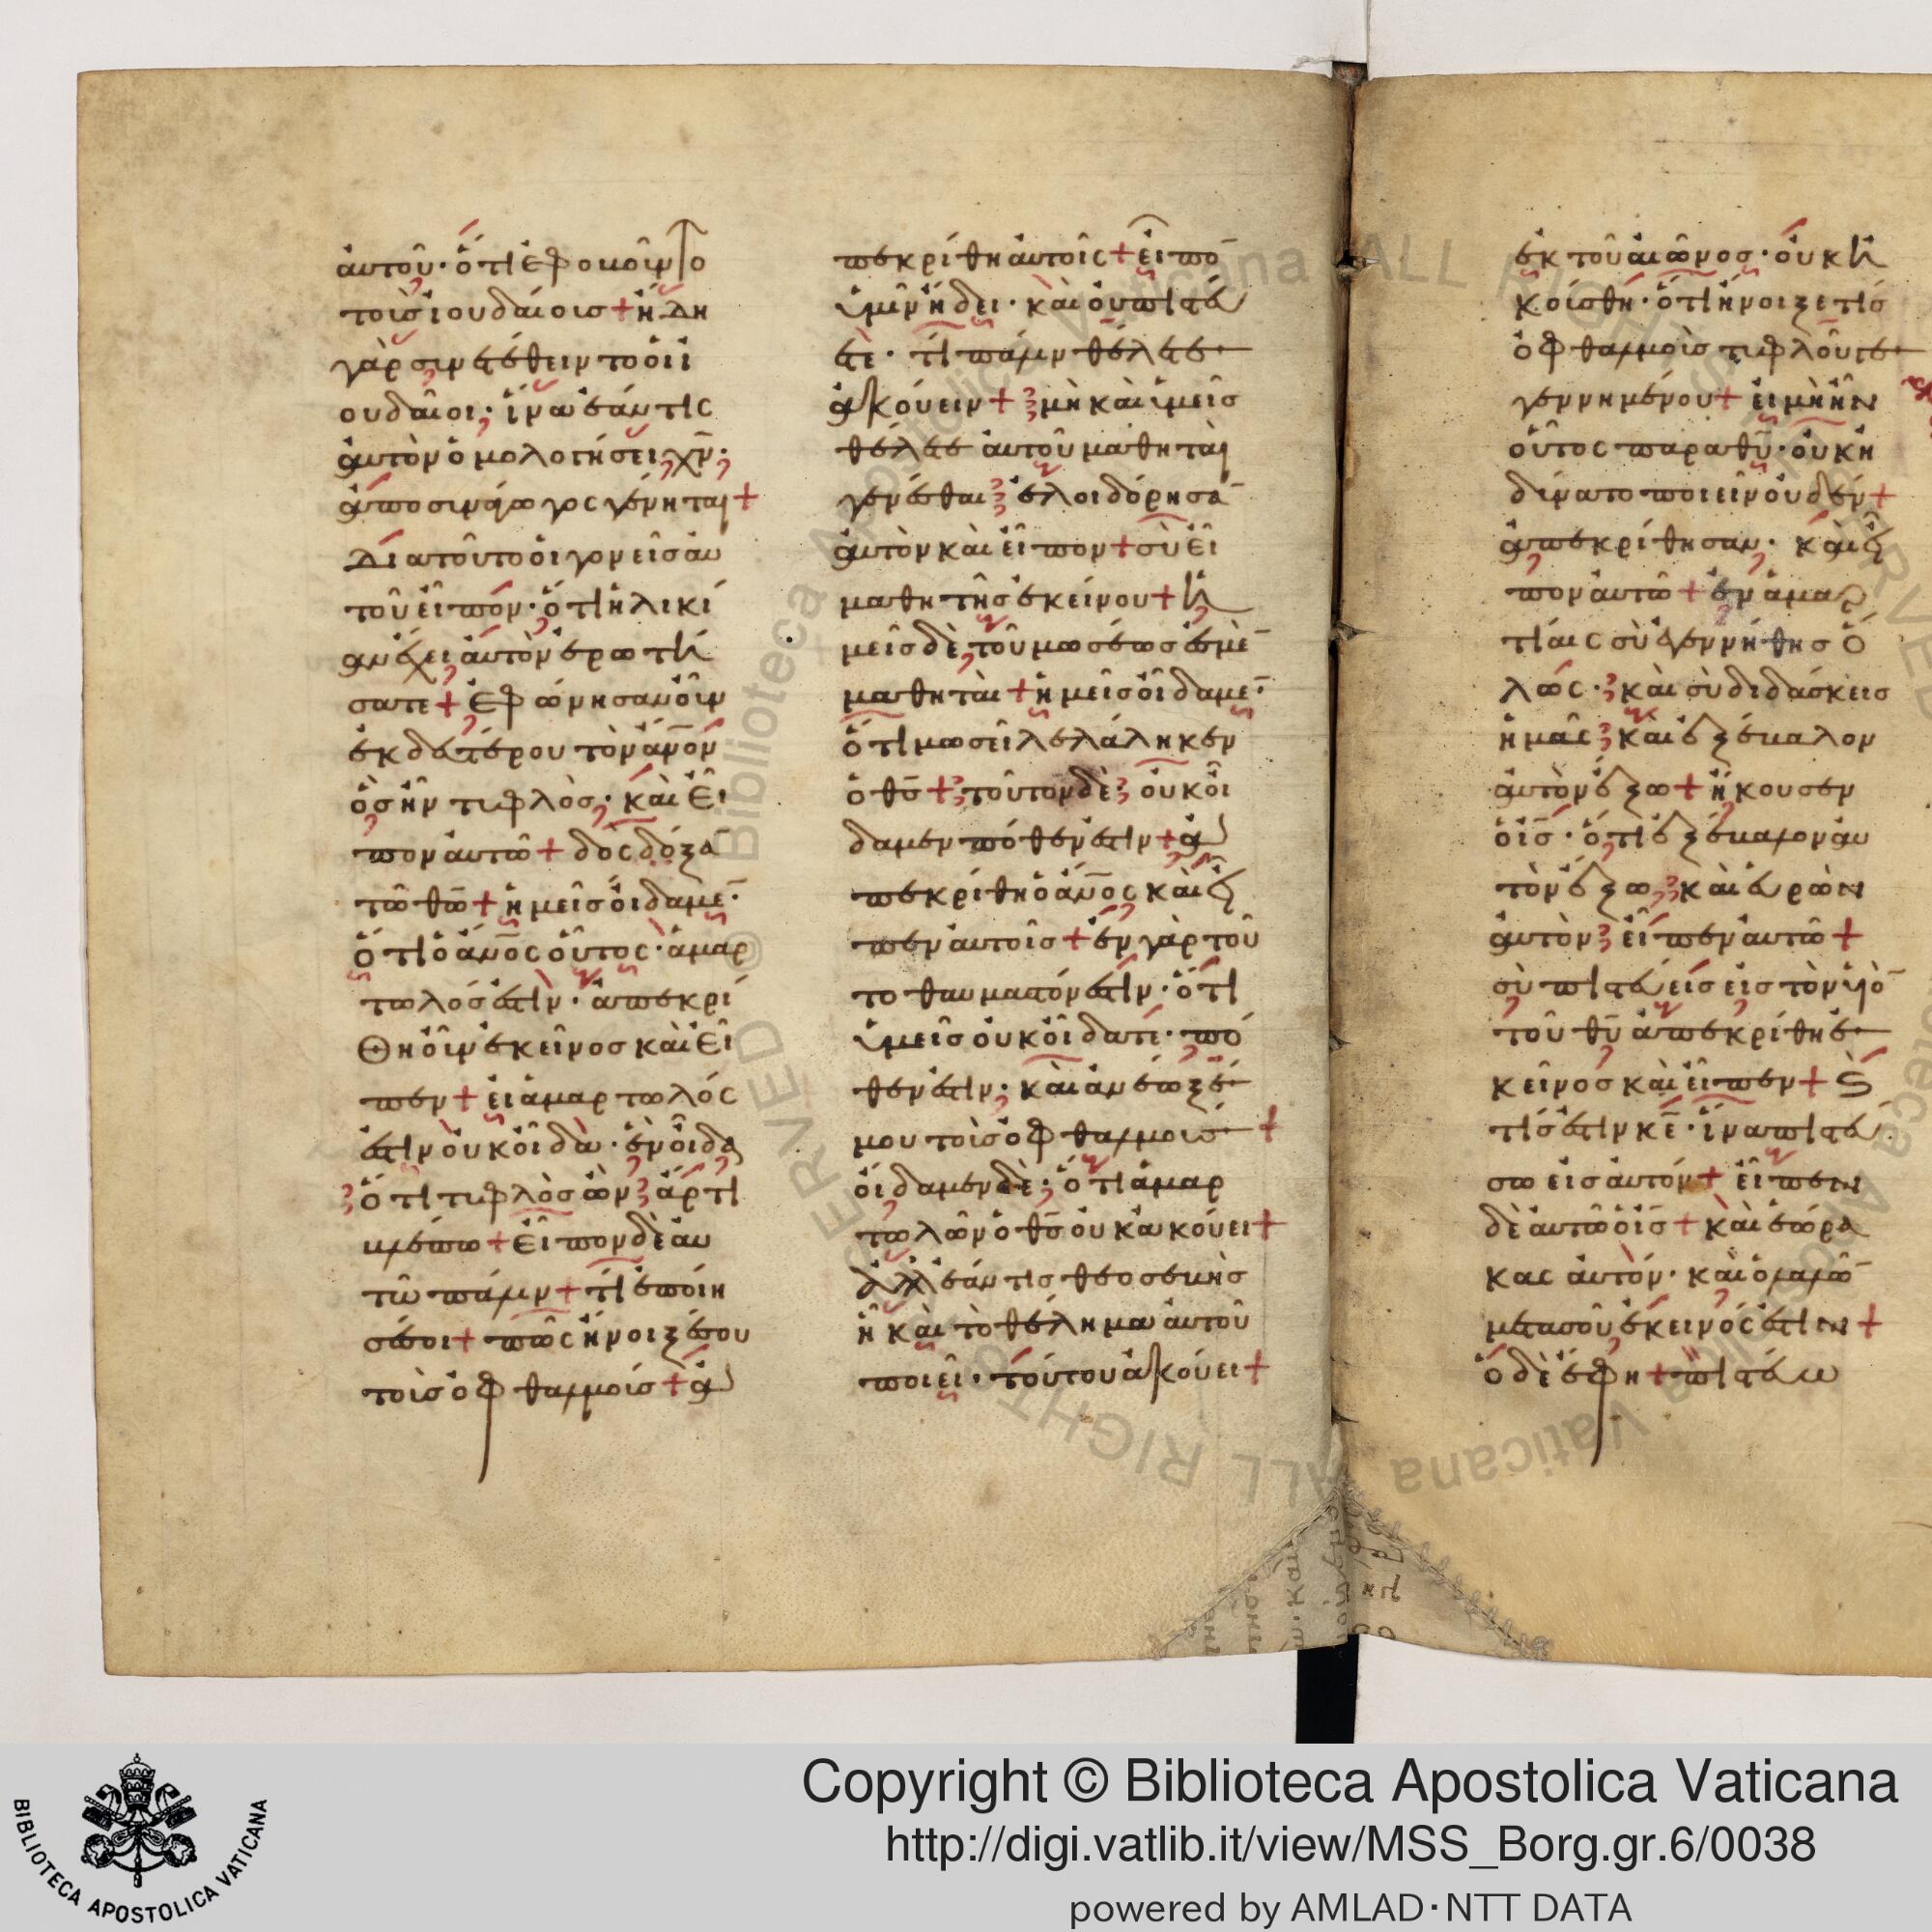 ἀυτοῦ· ὅτι ἐφοβοῦντο
τοὺς ἰουδαίοις + ἤδη
γὰρ συνετέθειντο ὁι ἰ
ουδαῖοι· ἵνα ἐάν τις
ἀυτὸν ὁμολογήσει χν̄·
ἀποσυνάγωγος γένηται +
Διατοῦτο ὁι γονεῖς ἀυ
τοῦ εἶπον· ὅτι ἡλικί
αν ἔχει ἀυτὸν ἐρωτή
σατε + Ἐφώνησαν οὖν
ἐκ δευτέρου τὸν ἀν̄ον
ὃς ἦν τυφλὸς· καὶ εἶ
πον ἀυτῶ + δὸς δόξᾱ
τῶ θω̄ + ἡμεῖς ὀίδαμε̄·
ὅτι ὁ ἀν̄ος οὗτος· ἁμαρ
τωλός ἐστιν· ἀπεκρί
Θη οὖν ἐκεῖνος καὶ εἶ
πεν + ἐι ἁμαρτωλός
ἐστιν ὀυκ οἶδα· ἓν οἶδα
ὅτι τυφλὸς ὢν ἄρτι
βλέπω + εἶπον δὲ ἀυ
τῶ πάλιν + τί ἐποίη
σέ σοι + πῶς ἤνοιξέ σου
τοὺς ὀφθαλμούς + ἀ
πεκρίθη ἀυτοῖς + εἶπο̄
ὑμῖν ἤδει· καὶ ὀυ πιστέυ
ετε· τί πάλιν θέλετε
ἀκούειν + μὴ καὶ ὑμεῖς
θέλετε ἀυτοῦ μαθηταὶ
γενέσθαι ἐλοιδόρησᾱ
ἀυτὸν καὶ εἶπον + σὺ εἶ
μαθητὴς ἐκείνου + ἡ
μεῖς δὲ τοῦ μωσέως ἐσμὲ̄
μαθηταὶ + ἡμεῖς οἴδαμε̄·
ὅτι μωσεῖ λελάληκεν
ὁ θς̄ + τοῦτον δὲ ὀυκ οἴ
δαμεν πόθεν ἐστίν + ἀ
πεκρίθη ὁ ἀν̄ος καὶ εἶ
πεν ἀυτοῖς + ἐν γὰρ τοῦ
το θαυμαστόν ἐστιν· ὅτι
ὑμεῖς ὀυκ οἴδατε· πό
θεν ἐστίν· καὶ ἀνέωξέ
μου τοὺς ὀφθαλμούς +
ὀίδαμεν δὲ· ὅτι ἁμαρ
τωλῶν ὁ θς̄ ὀυκ ἀκούει +
ἀλλ' ἐάν τις θεοσεβὴς
ἦ καὶ τὸ θέλημα ἀυτοῦ
ποιεῖ· τούτου ἀκούει +
ἐκ τοῦ ἀιῶνος· ὀυκ ἠ
κούσθη· ὅτι ἤνοιξε τις
ὀφθαλμοὺς τυφλοῦ
γεγεννημένου + ἐι μὴ ἦν
οὗτος παρα θῡ· ὀυκ ἠ
δύνατο ποιεῖν ὀυδέν +
ἀπεκρίθησαν· καὶ εἶ
πον ἀυτῶ + ἐν ἁμαρ
τίαις σὺ ἐγεννήθης ὅ
λως· καὶ σὺ διδάσκεις
ἡμᾶς καὶ ἐξέβαλον
ἀυτὸν ἔξω + ἤκουσεν
ὁ ῑς̄· ὅτι ἐξέβαλον ἀυ
τὸν ἔξω καὶ ἑυρὼν
ἀυτὸν εἶπεν ἀυτῶ +
σὺ πιστέυεις εἰς τὸν υἱὸ̄
τοῦ θῡ ἀπεκρίθη ἐ
κεῖνος καὶ εἶπεν + Ϛ
τίς ἐστιν κε̄· ἵνα πιστέυ
σω εἰς ἀυτόν + εἶπεν
δὲ ἀυτῶ ὁ ῑς̄ + καὶ ἑώρα
κας ἀυτόν· καὶ ὁ λαλῶ̄
μετα σοῦ ἐκεῖνός ἐστιν +
ὁ δὲ ἔφη + πιστέυω
Copyright © Biblioteca Apostolica Vaticana
http://digi.vatlib.it/view/MSS_Borg.gr.6/0038
powered by AMLAD·NTT DATA
BIBLIOTECA APOSTOLICA VATICANA